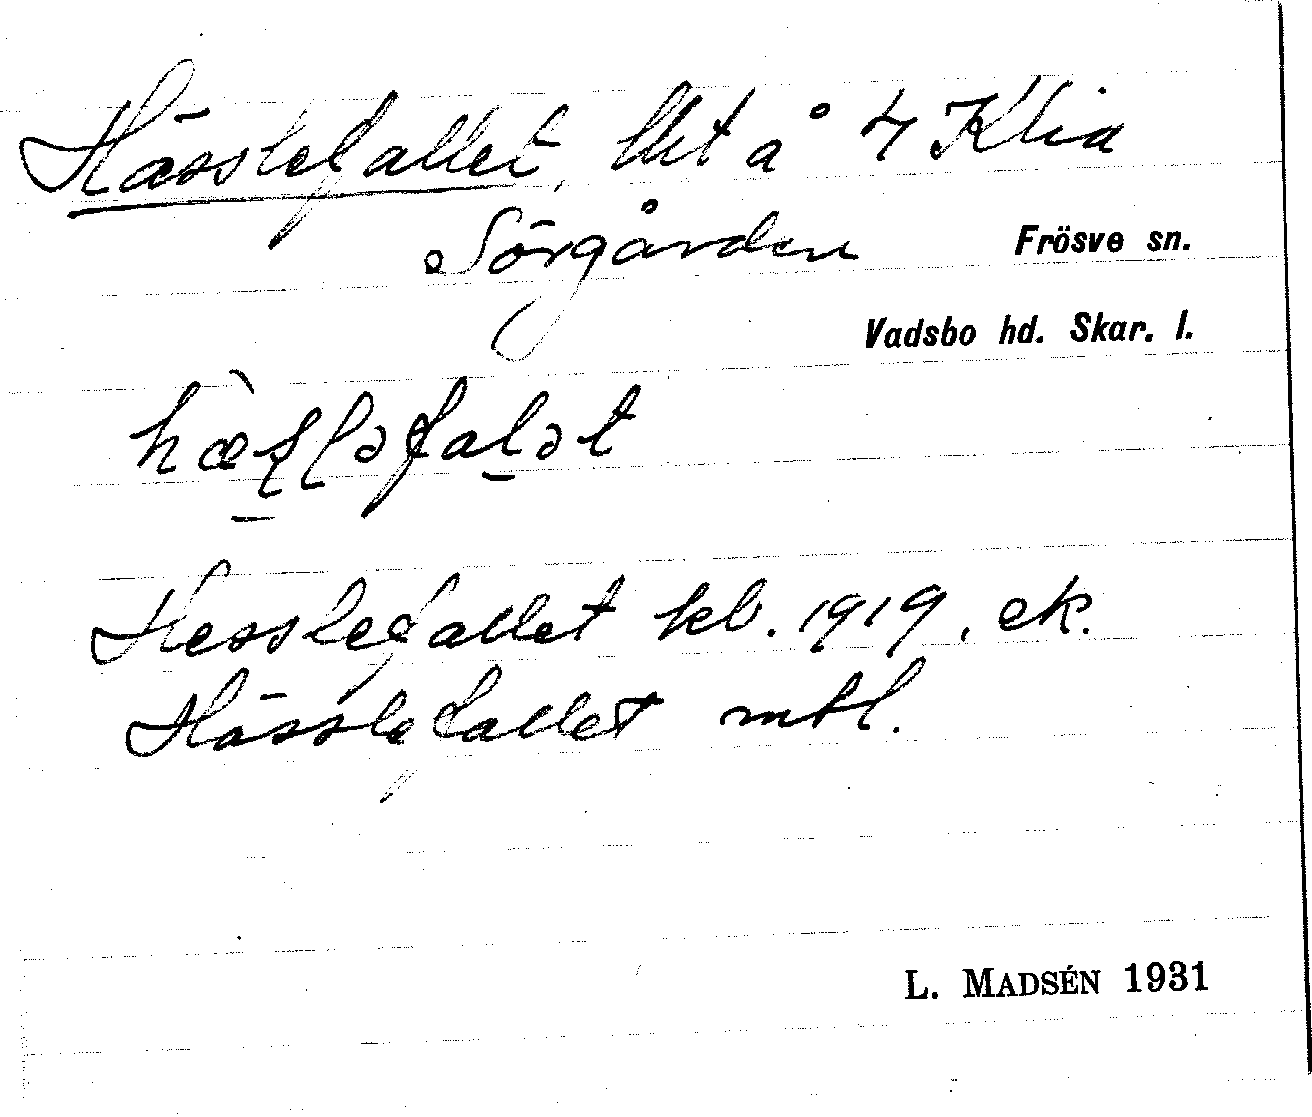 Hässlefallet, lht å 4 Klia
Sörgården
Frösve sn.
Vadsbo hd. Skar. l.
Hesslefallet kb. 1919, ek.
Hässlefallet mtl.
L. MADSÉN 1931